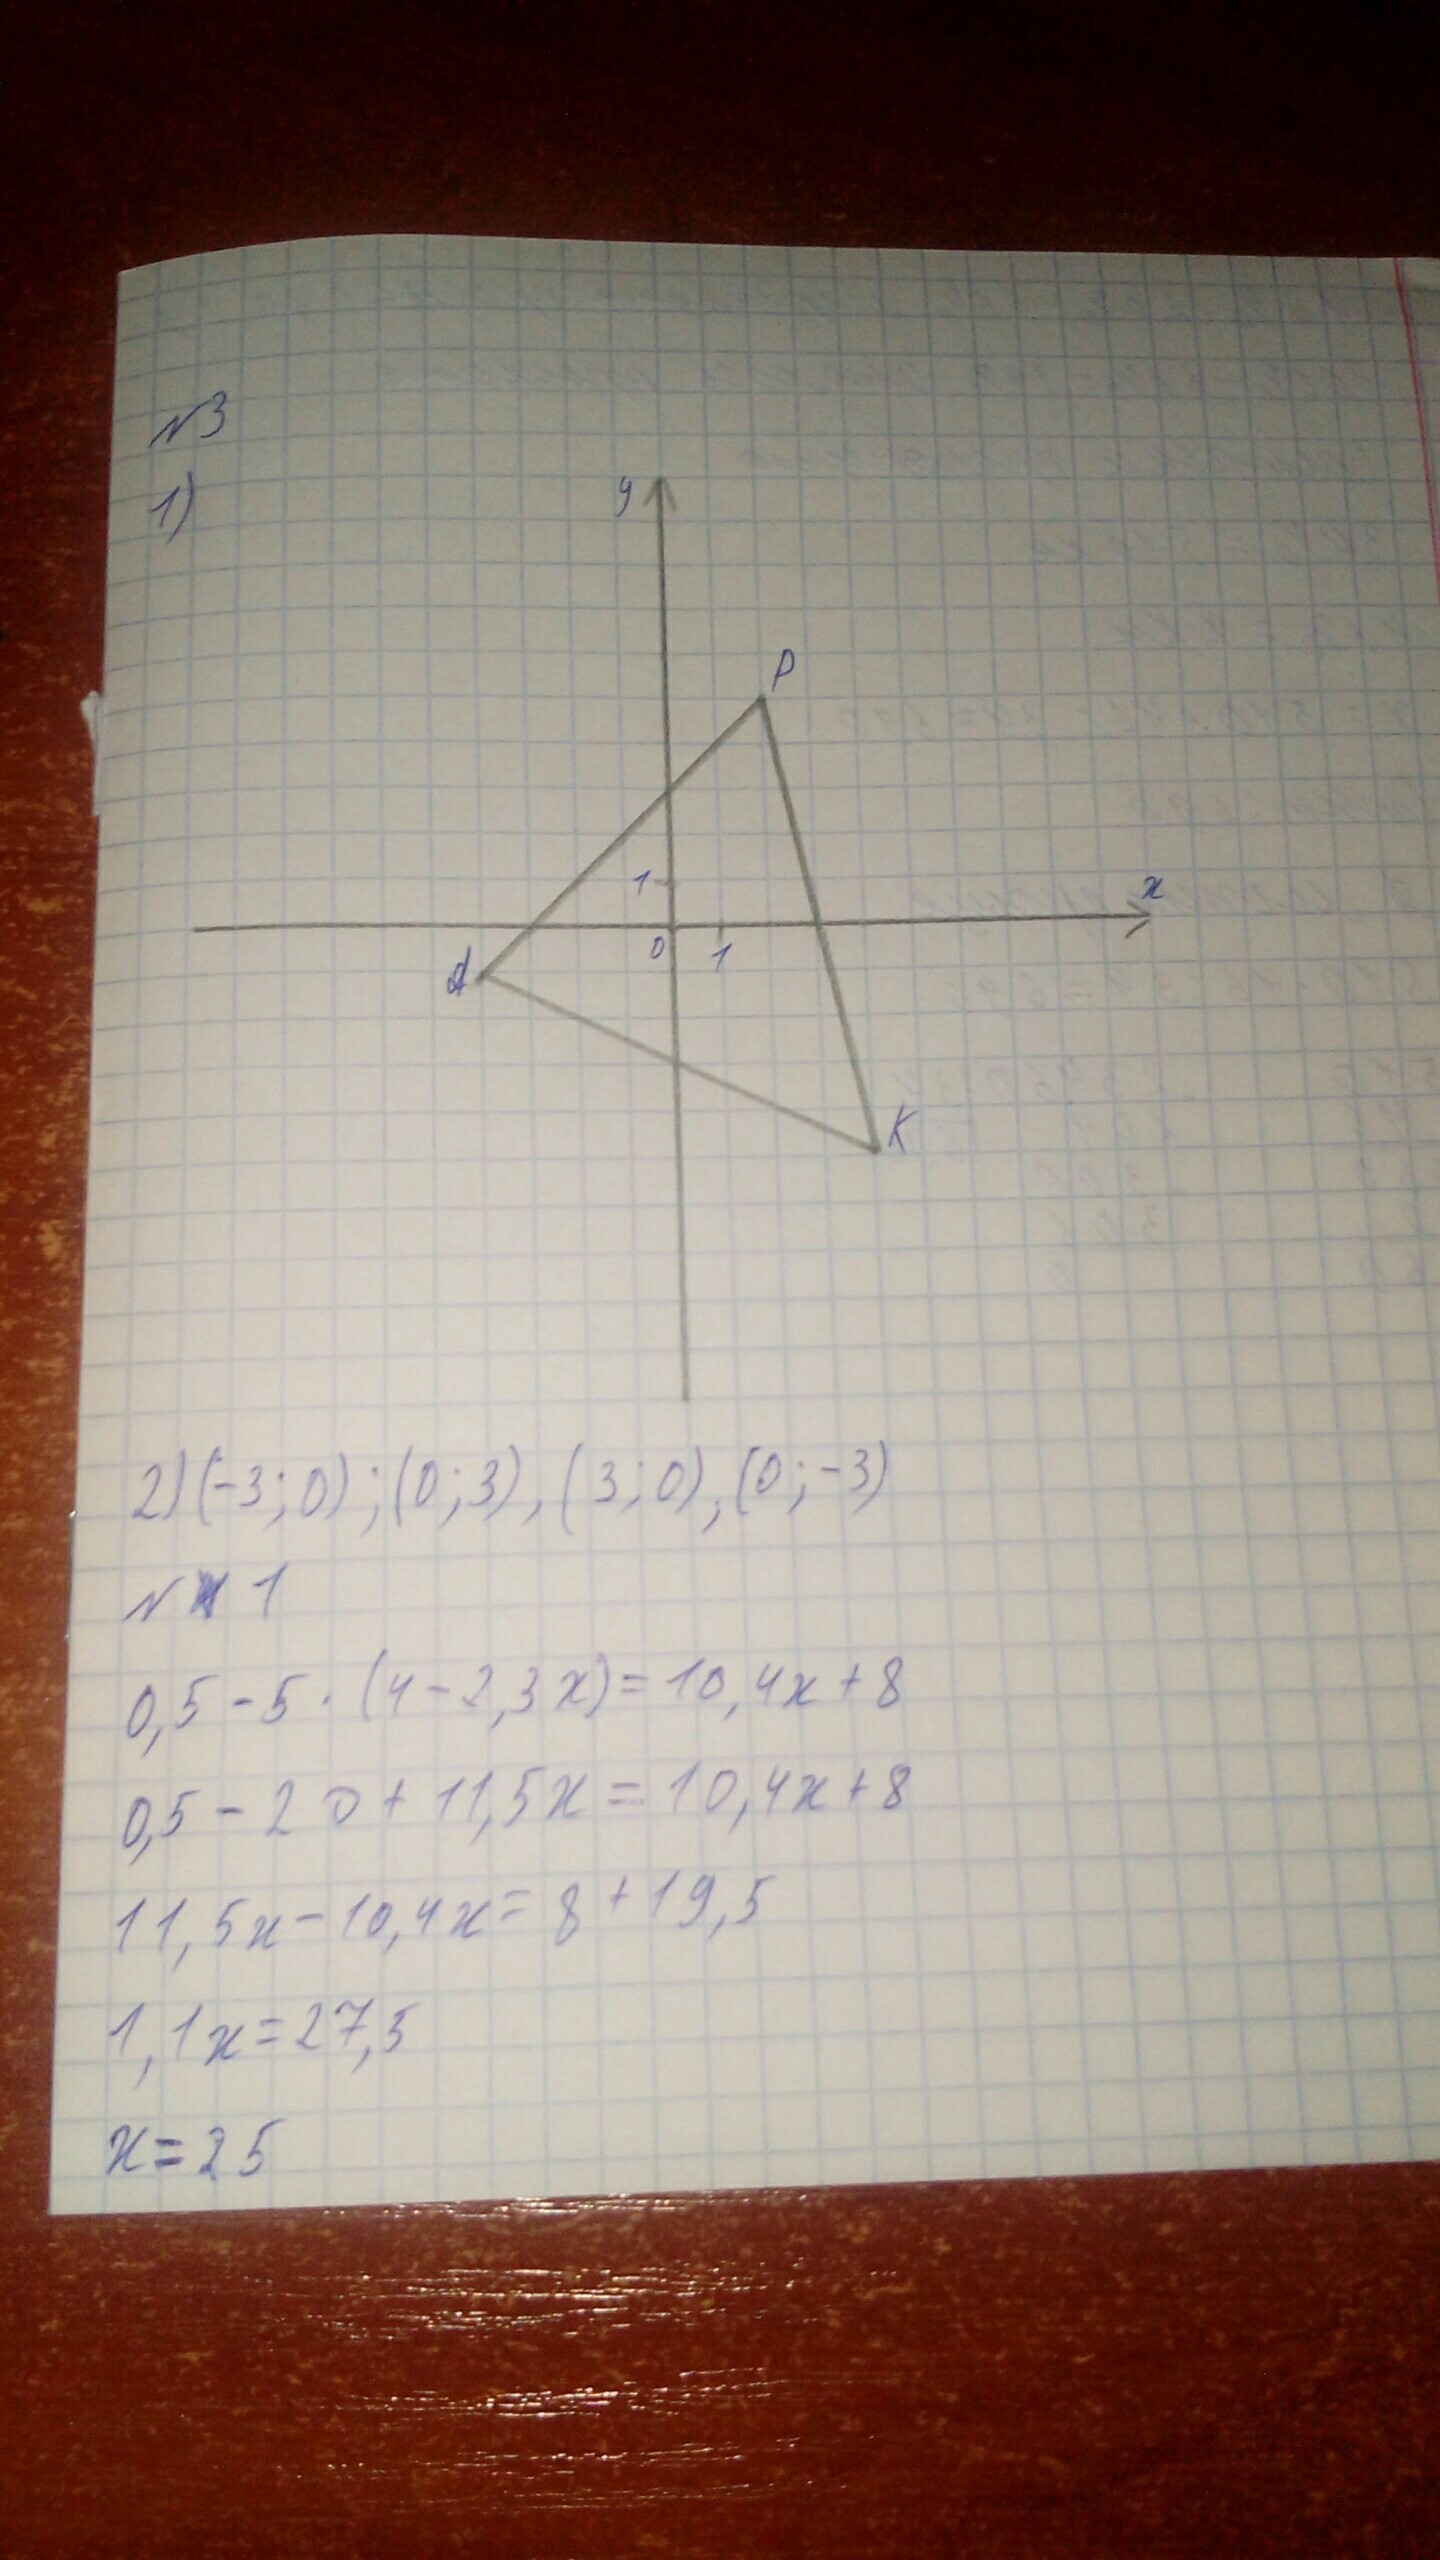 №3
1)
y
P
1
x
0 1
A
K
2) (-3; 0); (0; 3), (3; 0), (0; -3)
№ 1
0,5 - 5 · (4 - 2,3x) = 10,4x + 8
0,5 - 20 + 11,5x = 10,4x + 8
11,5x - 10,4x = 8 + 19,5
1,1x = 27,5
x = 25